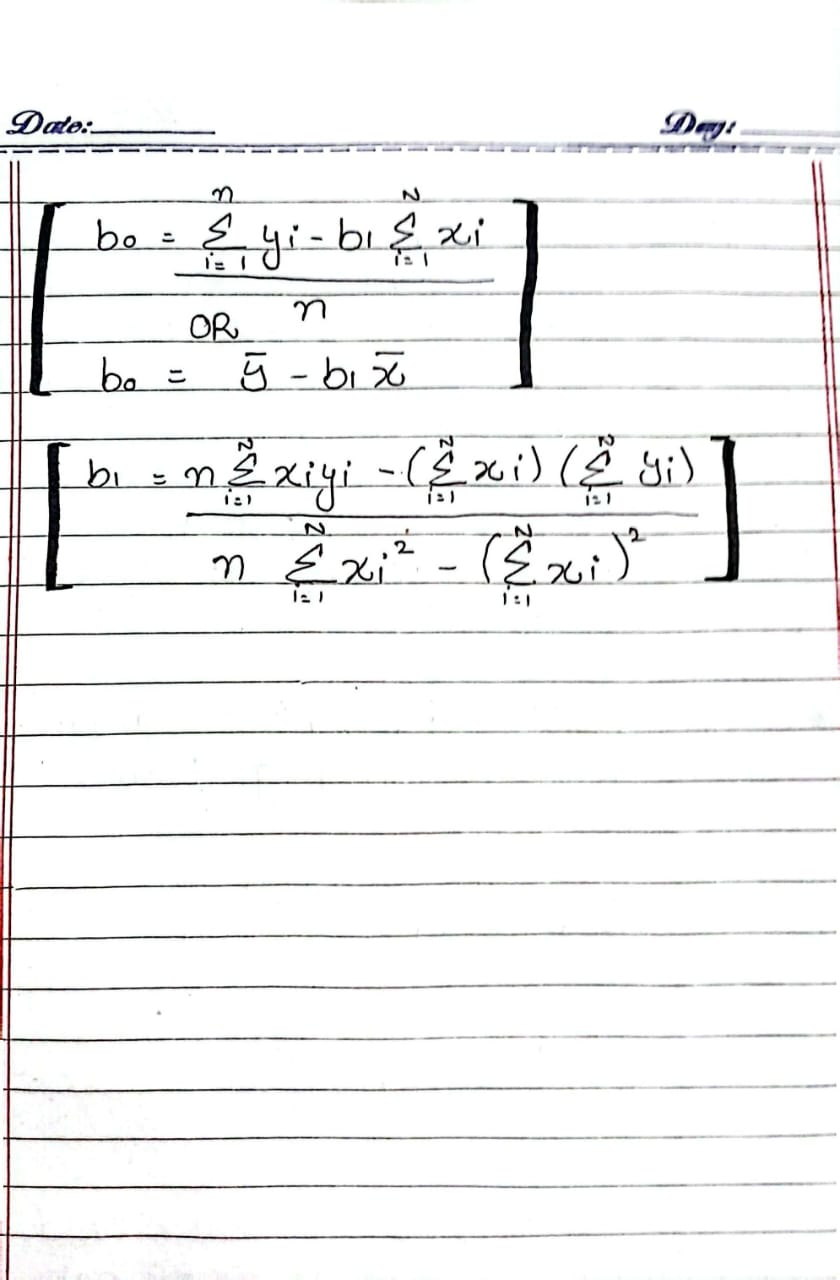 Date: Day:
b₀ = (∑ᵢ₌₁ⁿ yi - b₁ ∑ᵢ₌₁ᴺ xi) / n
OR
b₀ = ȳ - b₁ x̄
b₁ = (n ∑ᵢ₌₁ᴺ xiyi - (∑ᵢ₌₁ᴺ xi) (∑ᵢ₌₁ᴺ yi)) / (n ∑ᵢ₌₁ᴺ xi² - (∑ᵢ₌₁ᴺ xi)²)